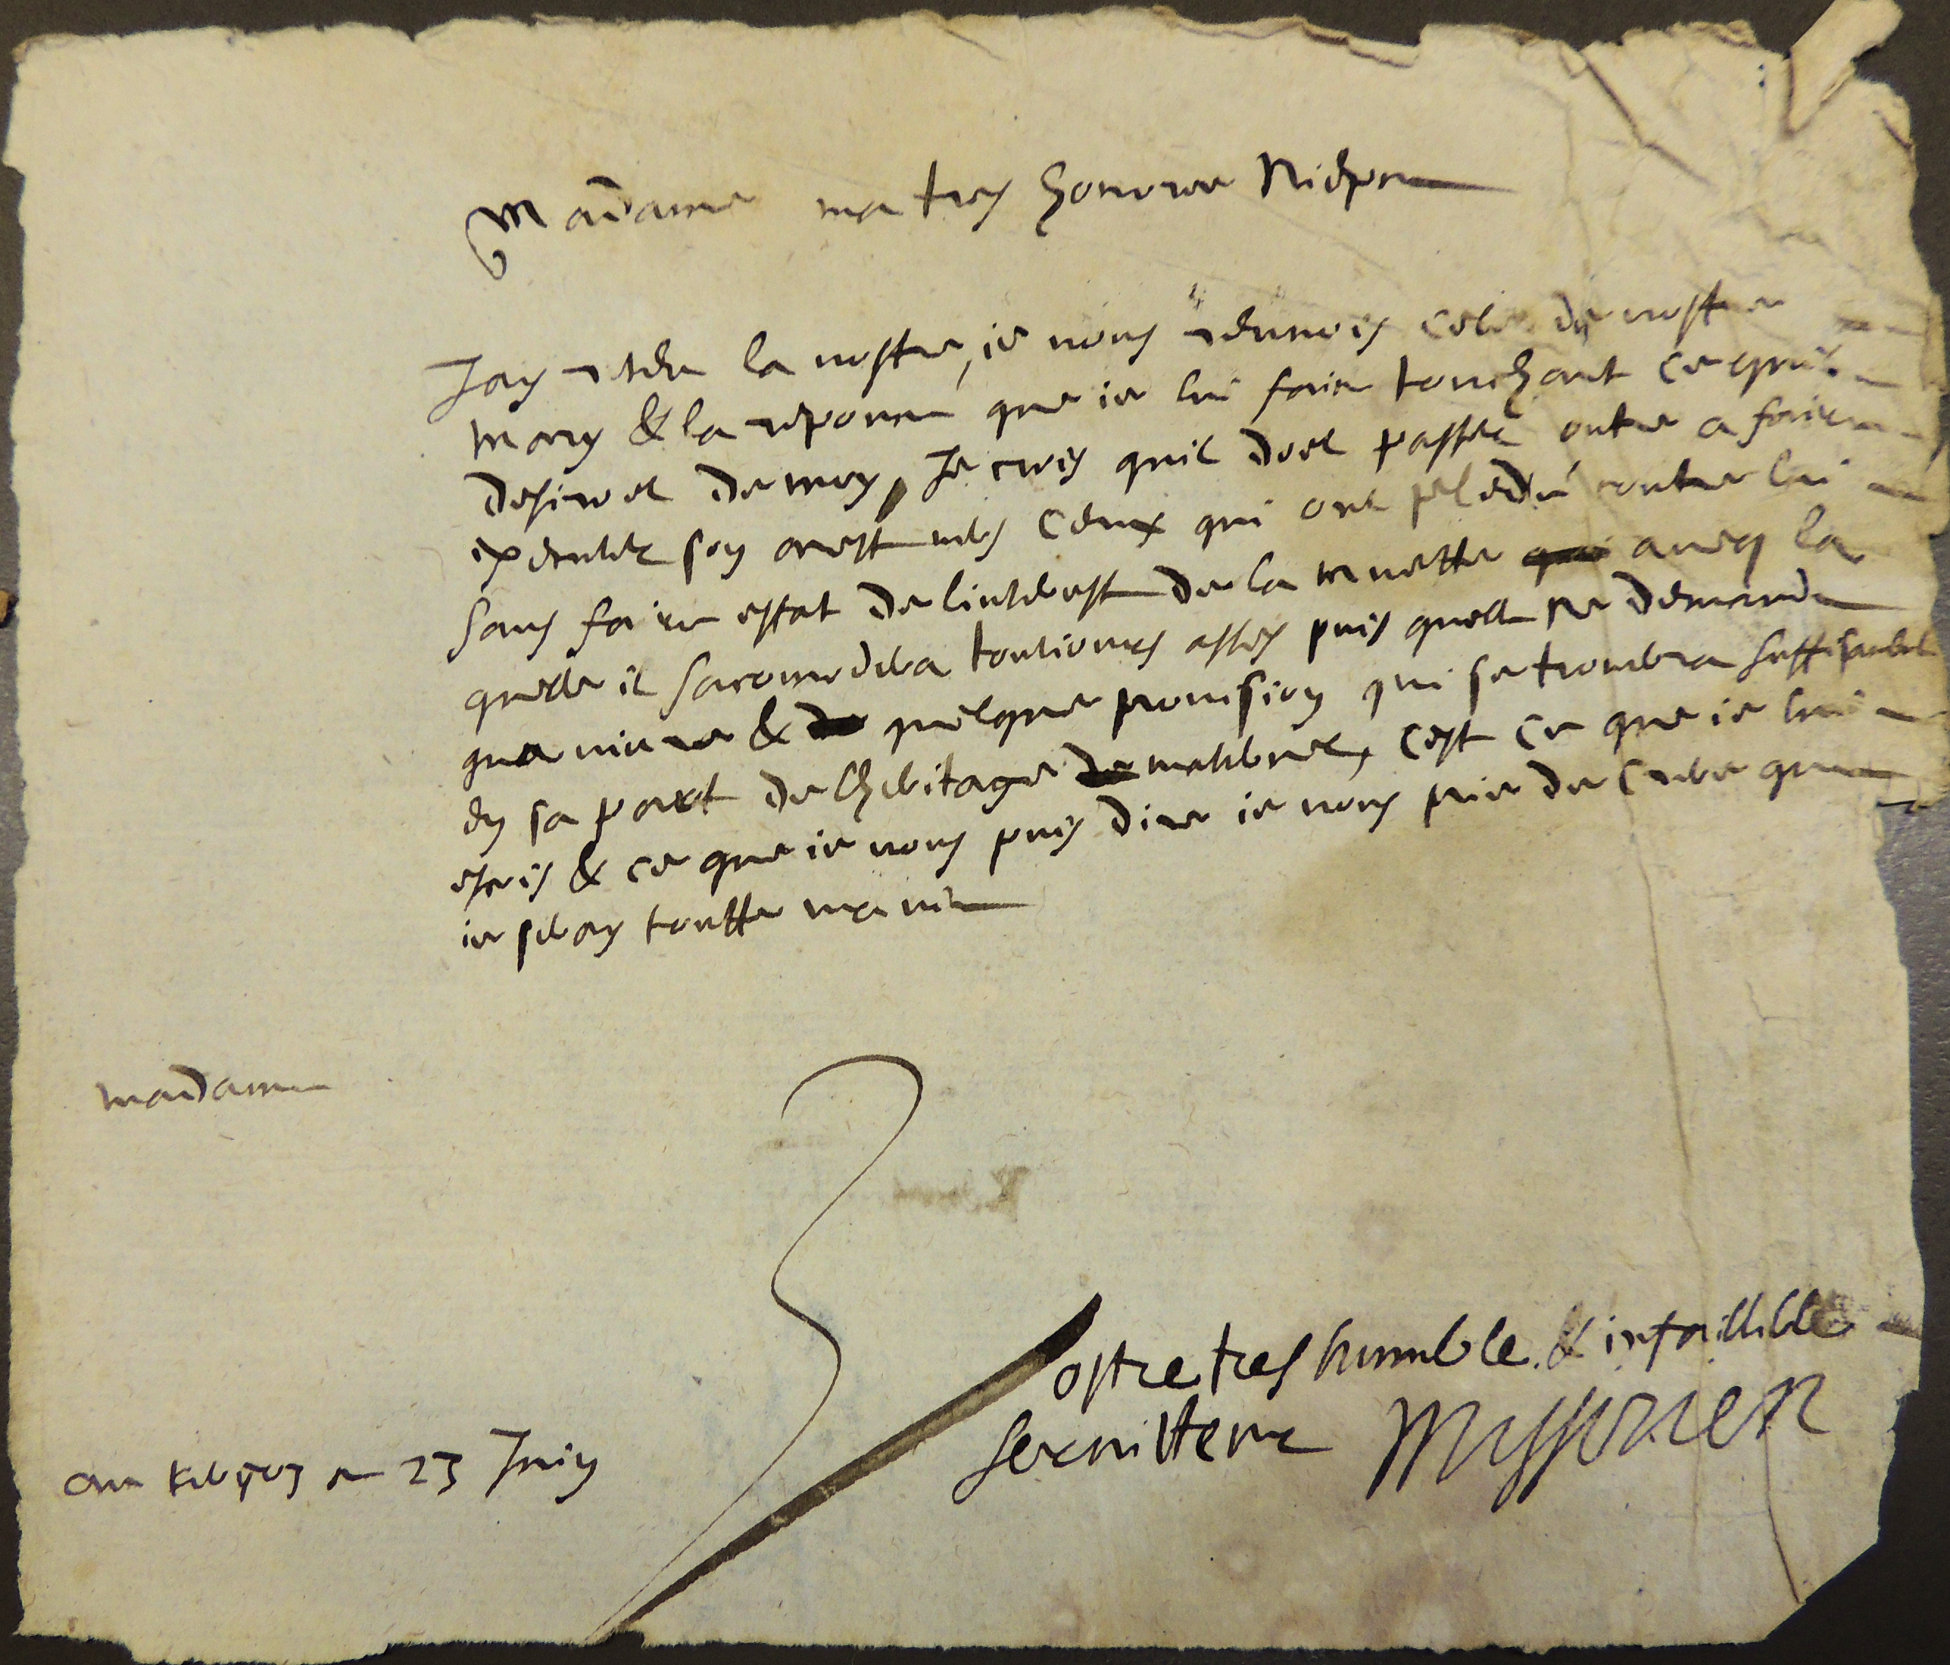 Madame ma tres honoree Niepce
Jay receu la vostre, ie vous renuois celle de vostre
mary & la reponce que ie lui faict touchant ce quil
desiroit de moy, Je crois quil doit passer outre a faire
executer son arest vers ceux qui ont pledé contre lui
sans faire estat de linterest de la muette aueq la
quelle il sacomodera tousiours asses puis quelle ne demande
que viure & quelque prouision qui se trouuera suffisante
en sa part de lheritage maternel, cest ce que ie lui
escris & ce que ie vous puis dire ie vous prie de croire que
ie seray toutte ma vie
madame
Vostre tres humble & infaillible
seruitteur Missirien
au 23 Juin